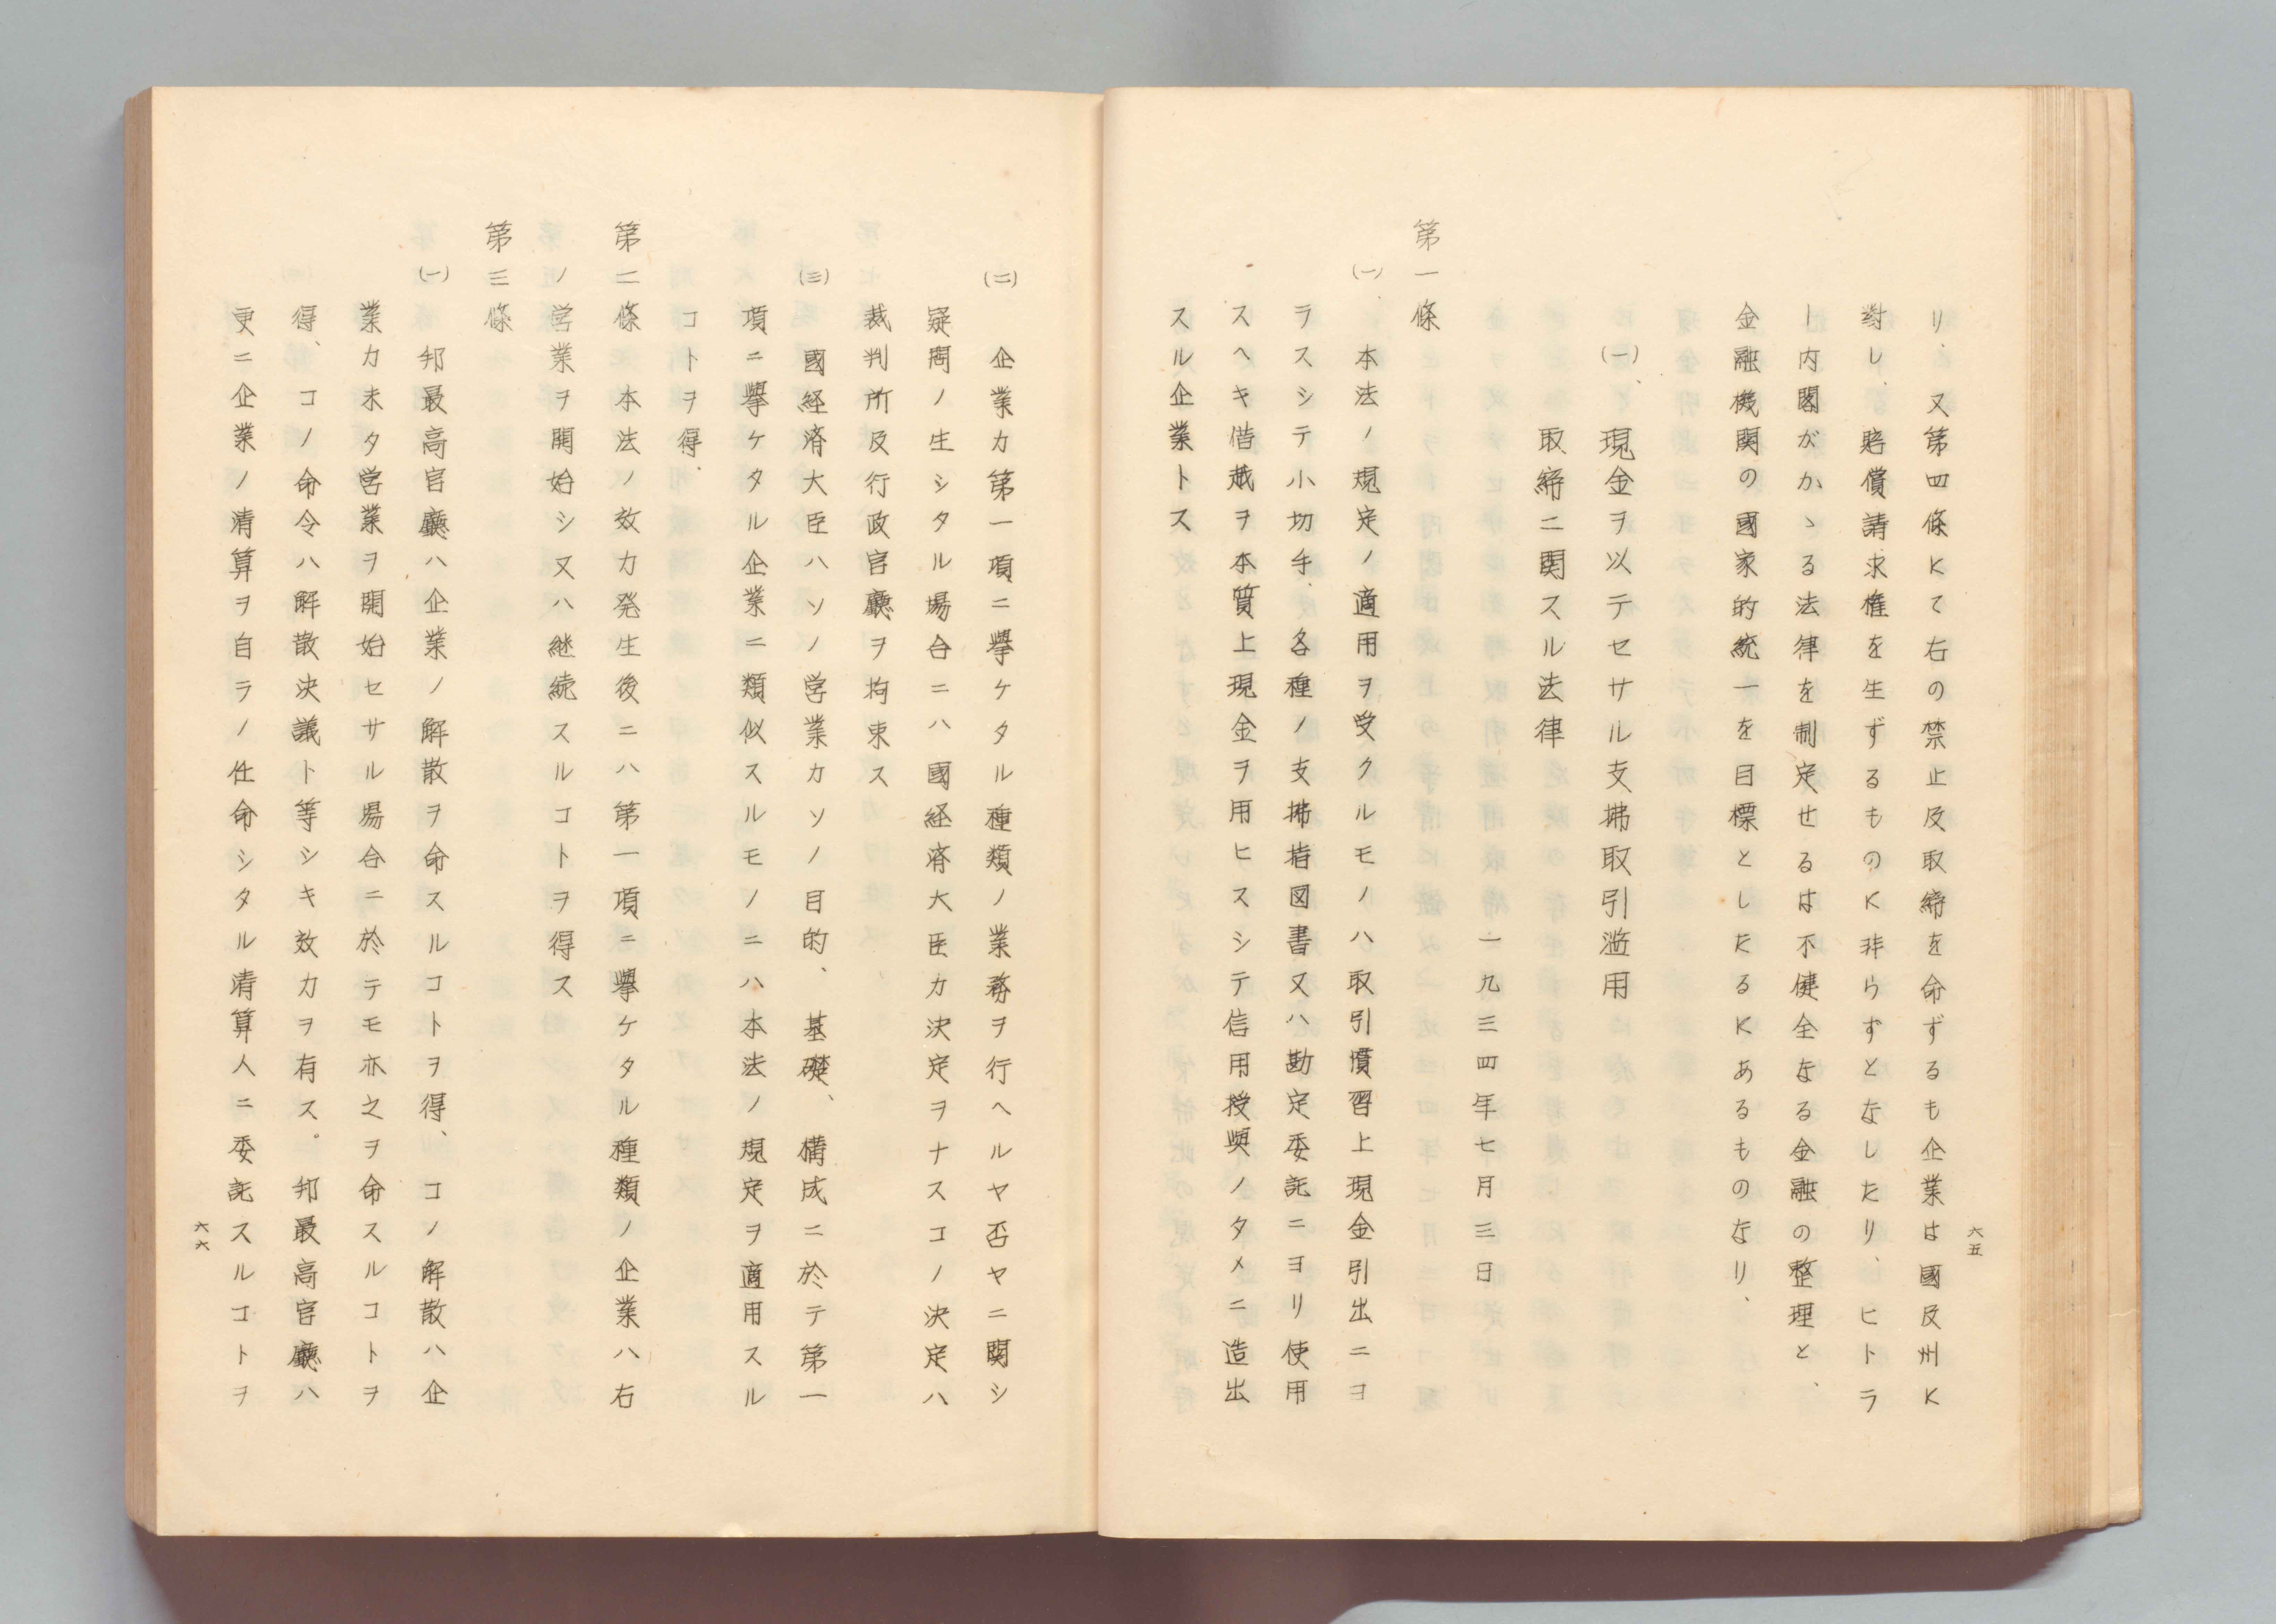 リ、又第四條にて右の禁止及取締を命ずるも企業は國及州に
對し、賠償請求権を生ずるものに非らずとなしたり、ヒトラ
ー内閣がかゝる法律を制定せるは不健全なる金融の整理と、
金融機関の國家的統一を目標としたるにあるものなり、
(一)、現金ヲ以テセサル支拂取引滥用
取締ニ関スル法律
一九三四年七月三日
第一條
(一)本法ノ規定ノ適用ヲ受クルモノハ取引慣習上現金引出ニヨ
ラスシテ小切手、各種ノ支拂指図書又ハ勘定委託ニヨリ使用
スヘキ借越ヲ本質上現金ヲ用ヒスシテ信用授與ノタメニ造出
スル企業トス
六五
(二)企業カ第一項ニ擧ケタル種類ノ業務ヲ行ヘルヤ否ヤニ関シ
疑問ノ生シタル場合ニハ國経済大臣カ決定ヲナスコノ決定ハ
裁判所及行政官廳ヲ拘束ス
(三)國経済大臣ハソノ営業カソノ目的、基礎、構成ニ於テ第一
項ニ擧ケタル企業ニ類似スルモノニハ本法ノ規定ヲ適用スル
コトヲ得、
第二條 本法ノ效力発生後ニハ第一項ニ擧ケタル種類ノ企業ハ右
ノ営業ヲ開始シ又ハ継続スルコトヲ得ス
第三條
(一)邦最高官廳ハ企業ノ解散ヲ命スルコトヲ得、コノ解散ハ企
業カ未タ営業ヲ開始セサル場合ニ於テモ亦之ヲ命スルコトヲ
得、コノ命令ハ解散決議ト等シキ效力ヲ有ス。邦最高官廳ハ
更ニ企業ノ清算ヲ自ラノ任命シタル清算人ニ委託スルコトヲ
六六